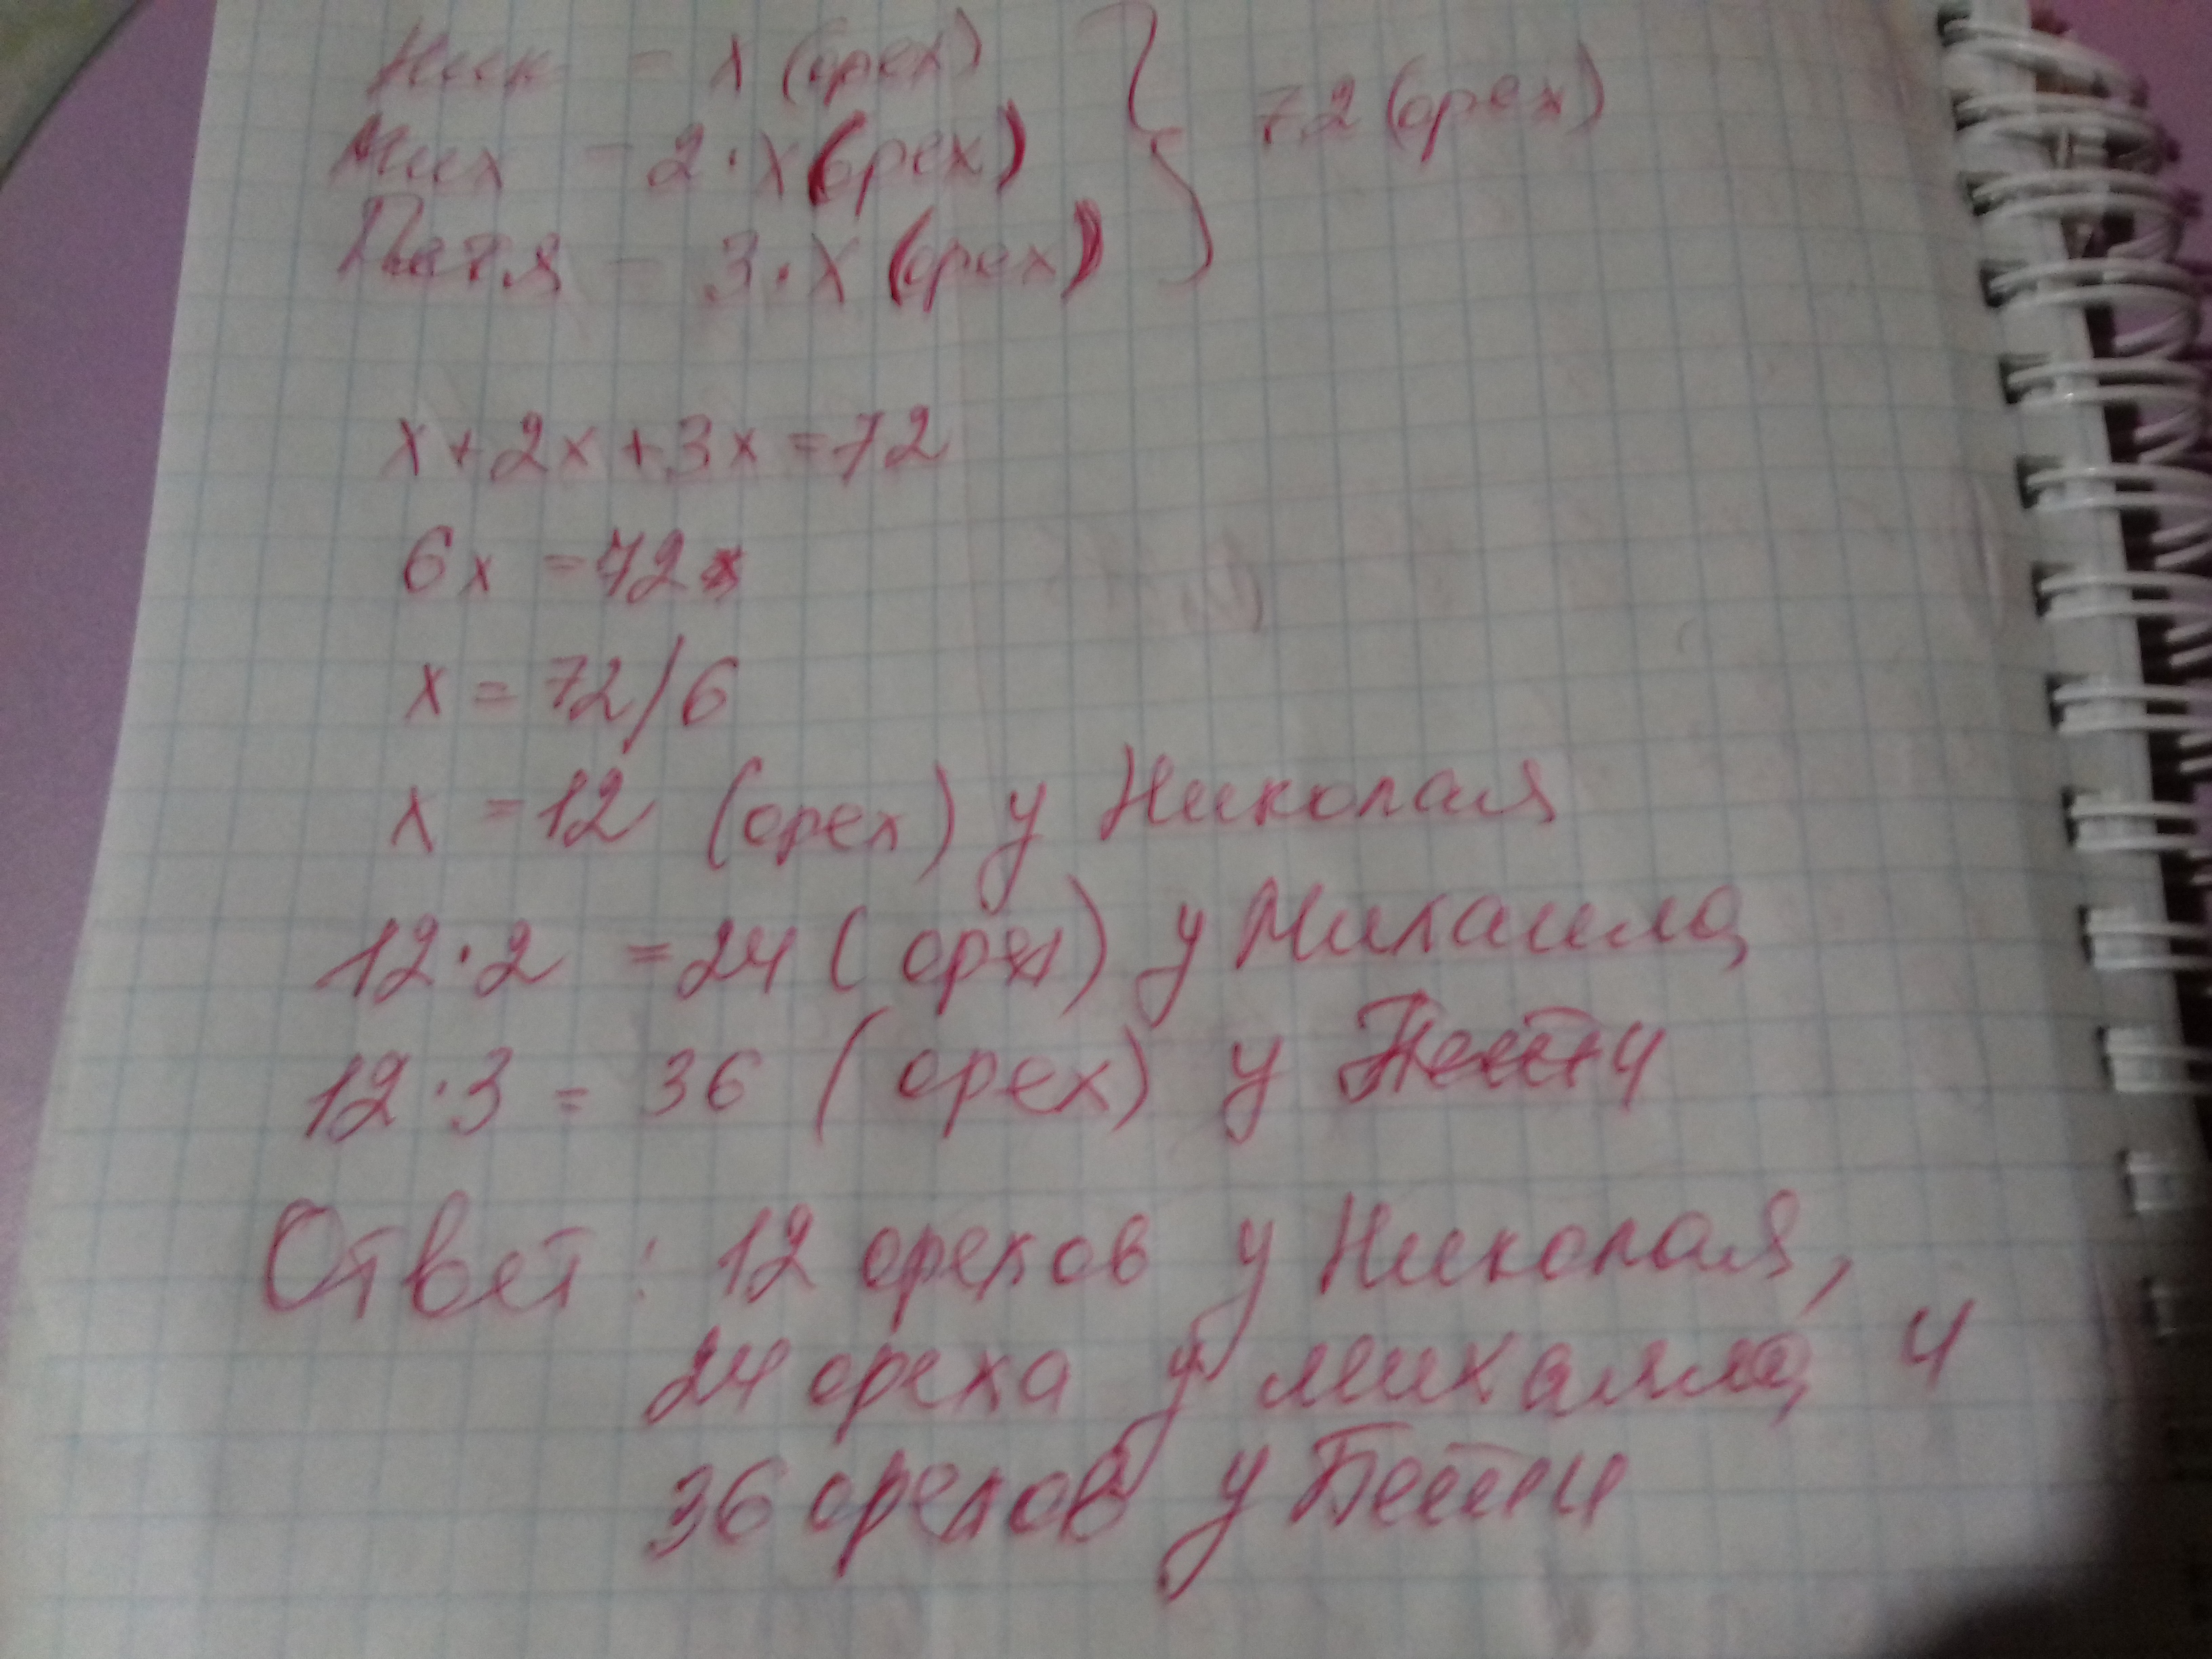 Ник - х (орех)
Мих - 2·х (орех)
Петя - 3·х (орех)
72 (орех)
х+2х+3х=72
6х =72
х = 72/6
х =12 (орех) у Николая
12·2 =24 (орех) у Михаила
12·3 = 36 (орех) у Пети
Ответ: 12 орехов у Николая,
24 ореха у михаила, и
36 орехов у Пети